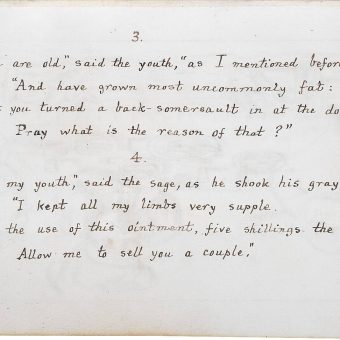 3.
are old," said the youth, "as I mentioned befor
"And have grown most uncommonly fat:
you turned a back-somersault in at the do
Pray what is the reason of that?"
4.
my youth," said the sage, as he shook his gray
"I kept all my limbs very supple.
the use of this ointment, five shillings the
Allow me to sell you a couple."